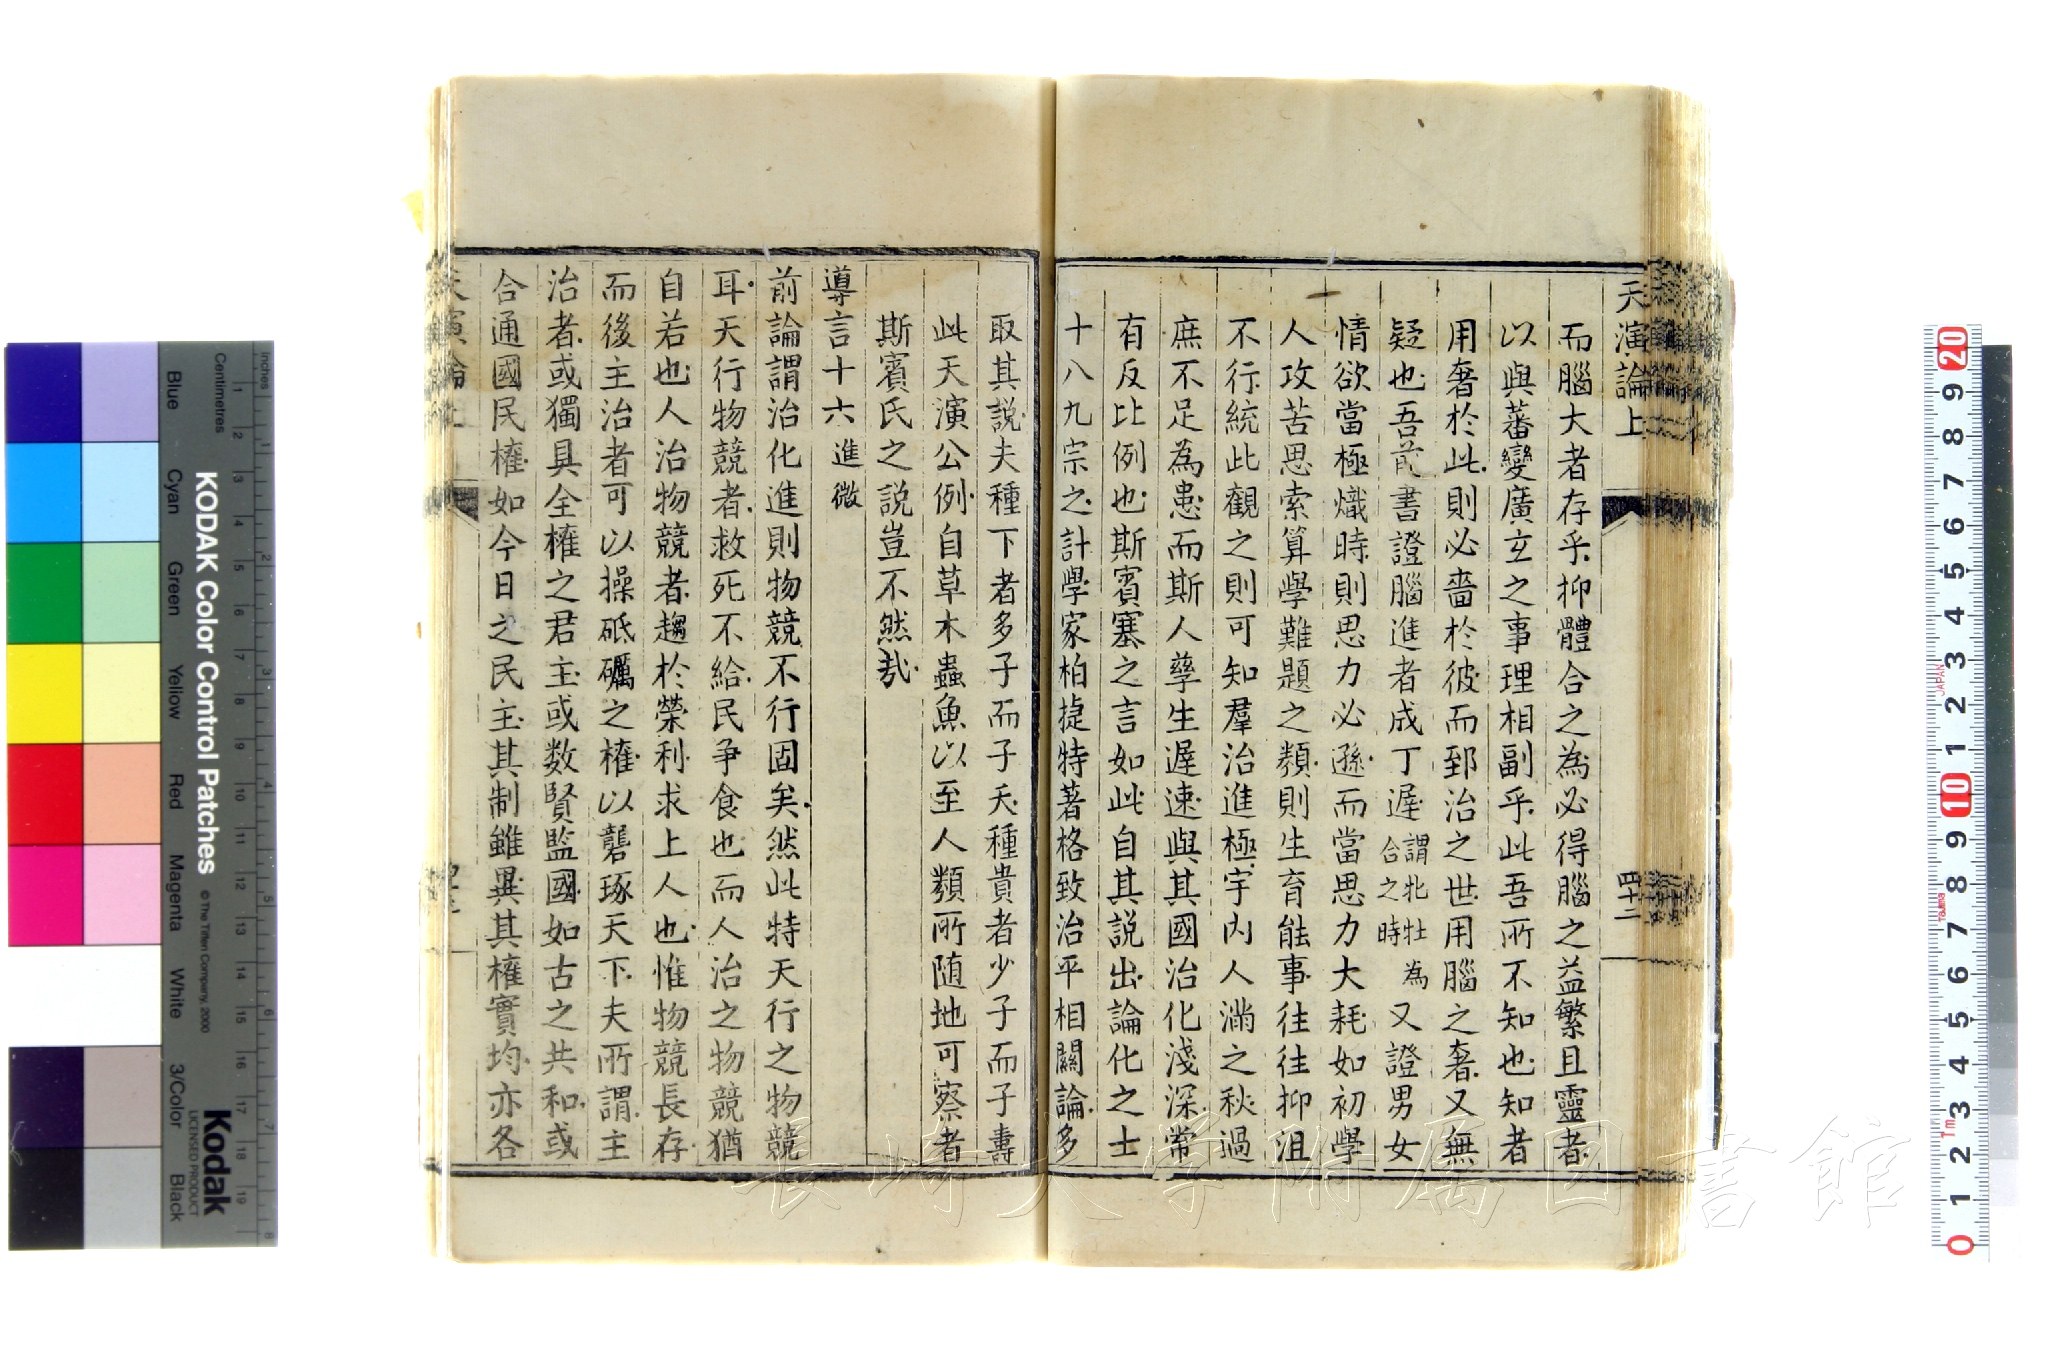 天演論上
四十二
而腦大者存乎抑體合之為必得腦之益繁且靈者
以與蕃變廣玄之事理相副乎此吾所不知也知者
用奢於此則必嗇於彼而郅治之世用腦之奢又無
疑也吾前書證腦進者成丁遲謂牝牡為合之時又證男女
情欲當極熾時則思力必遜而當思力大耗如初學
人攻苦思索算學難題之類則生育能事往往抑沮
不行統此觀之則可知羣治進極宇內人滿之秋過
庶不足為患而斯人孳生遲速與其國治化淺深常
有反比例也斯賓塞之言如此自其說出論化之士
十八九宗之計學家柏捷特著格致治平相關論多
取其說夫種下者多子而子夭種貴者少子而子壽
此天演公例自草木蟲魚以至人類所随地可察者
斯賓氏之說豈不然哉
導言十六進微
前論謂治化進則物競不行固矣然此特天行之物競
耳天行物競者救死不給民爭食也而人治之物競猶
自若也人治物競者趨於榮利求上人也惟物競長存
而後主治者可以操砥礪之權以礱琢天下夫所謂主
治者或獨具全權之君主或数賢監國如古之共和或
合通國民權如今日之民主其制雖異其權實均亦各
KODAK Color Control Patches
© The Tiffen Company, 2000
Kodak
LICENSED PRODUCT
Inches
Centimetres
Blue
Cyan
Green
Yellow
Red
Magenta
White
3/Color
Black
JAPAN
長崎大学附属図書館